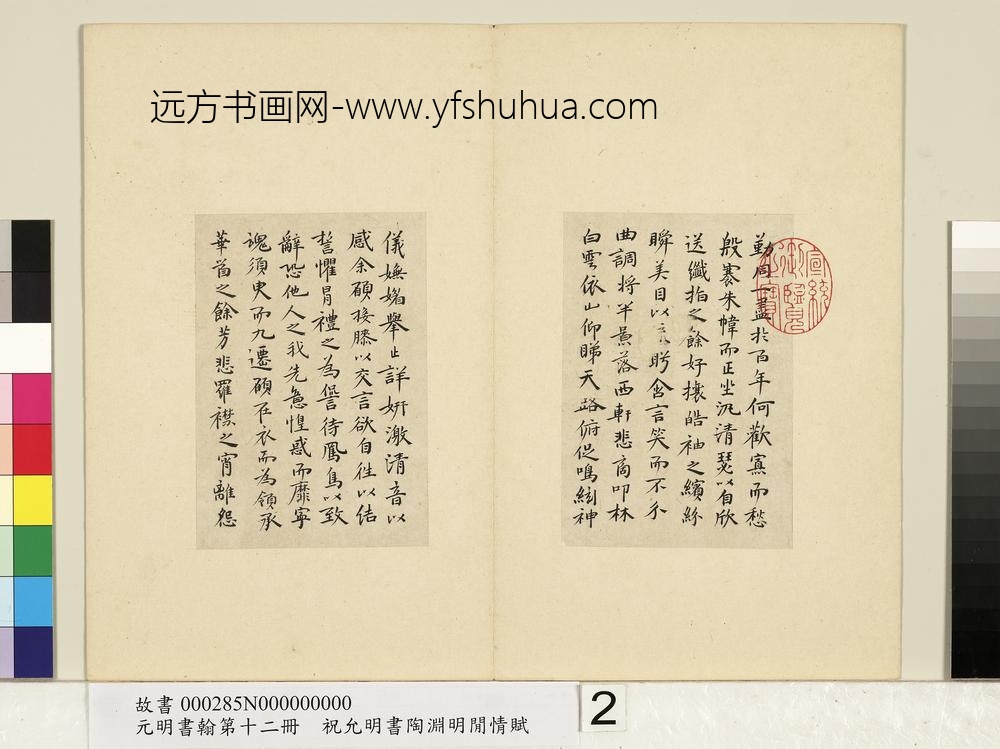 远方书画网-www.yfshuhua.com
勤同一盡於百年何歡寡而愁
殷褰朱幃而正坐汎清瑟以自欣
送纖指之餘好攘皓袖之繽紛
瞬美目以流眄含言笑而不分
曲調將半景落西軒悲商叩林
白雲依山仰睇天路俯促鳴絃神
宣統
御覽
之寶
儀嫵媚舉止詳妍激清音以
感余願接膝以交言欲自往以結
誓懼冒禮之為愆待鳳鳥以致
辭恐他人之我先意惶惑而靡寧
魂須臾而九遷願在衣而為領承
華首之餘芳悲羅襟之宵離怨
故書 000285N000000000
元明書翰第十二冊　祝允明書陶淵明閒情賦
2